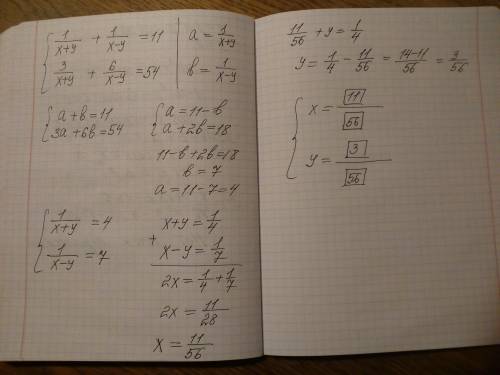 { 1/(x+y) + 1/(x-y) = 11
3/(x+y) + 6/(x-y) = 54
a = 1/(x+y)
b = 1/(x-y)
{ a+b=11
3a+6b=54
{ a=11-b
a+2b=18
11-b+2b=18
b=7
a=11-7=4
{ 1/(x+y) = 4
1/(x-y) = 7
x+y = 1/4
+
x-y = 1/7
2x = 1/4 + 1/7
2x = 11/28
x = 11/56
11/56 + y = 1/4
y = 1/4 - 11/56 = (14-11)/56 = 3/56
{ x = 11/56
y = 3/56